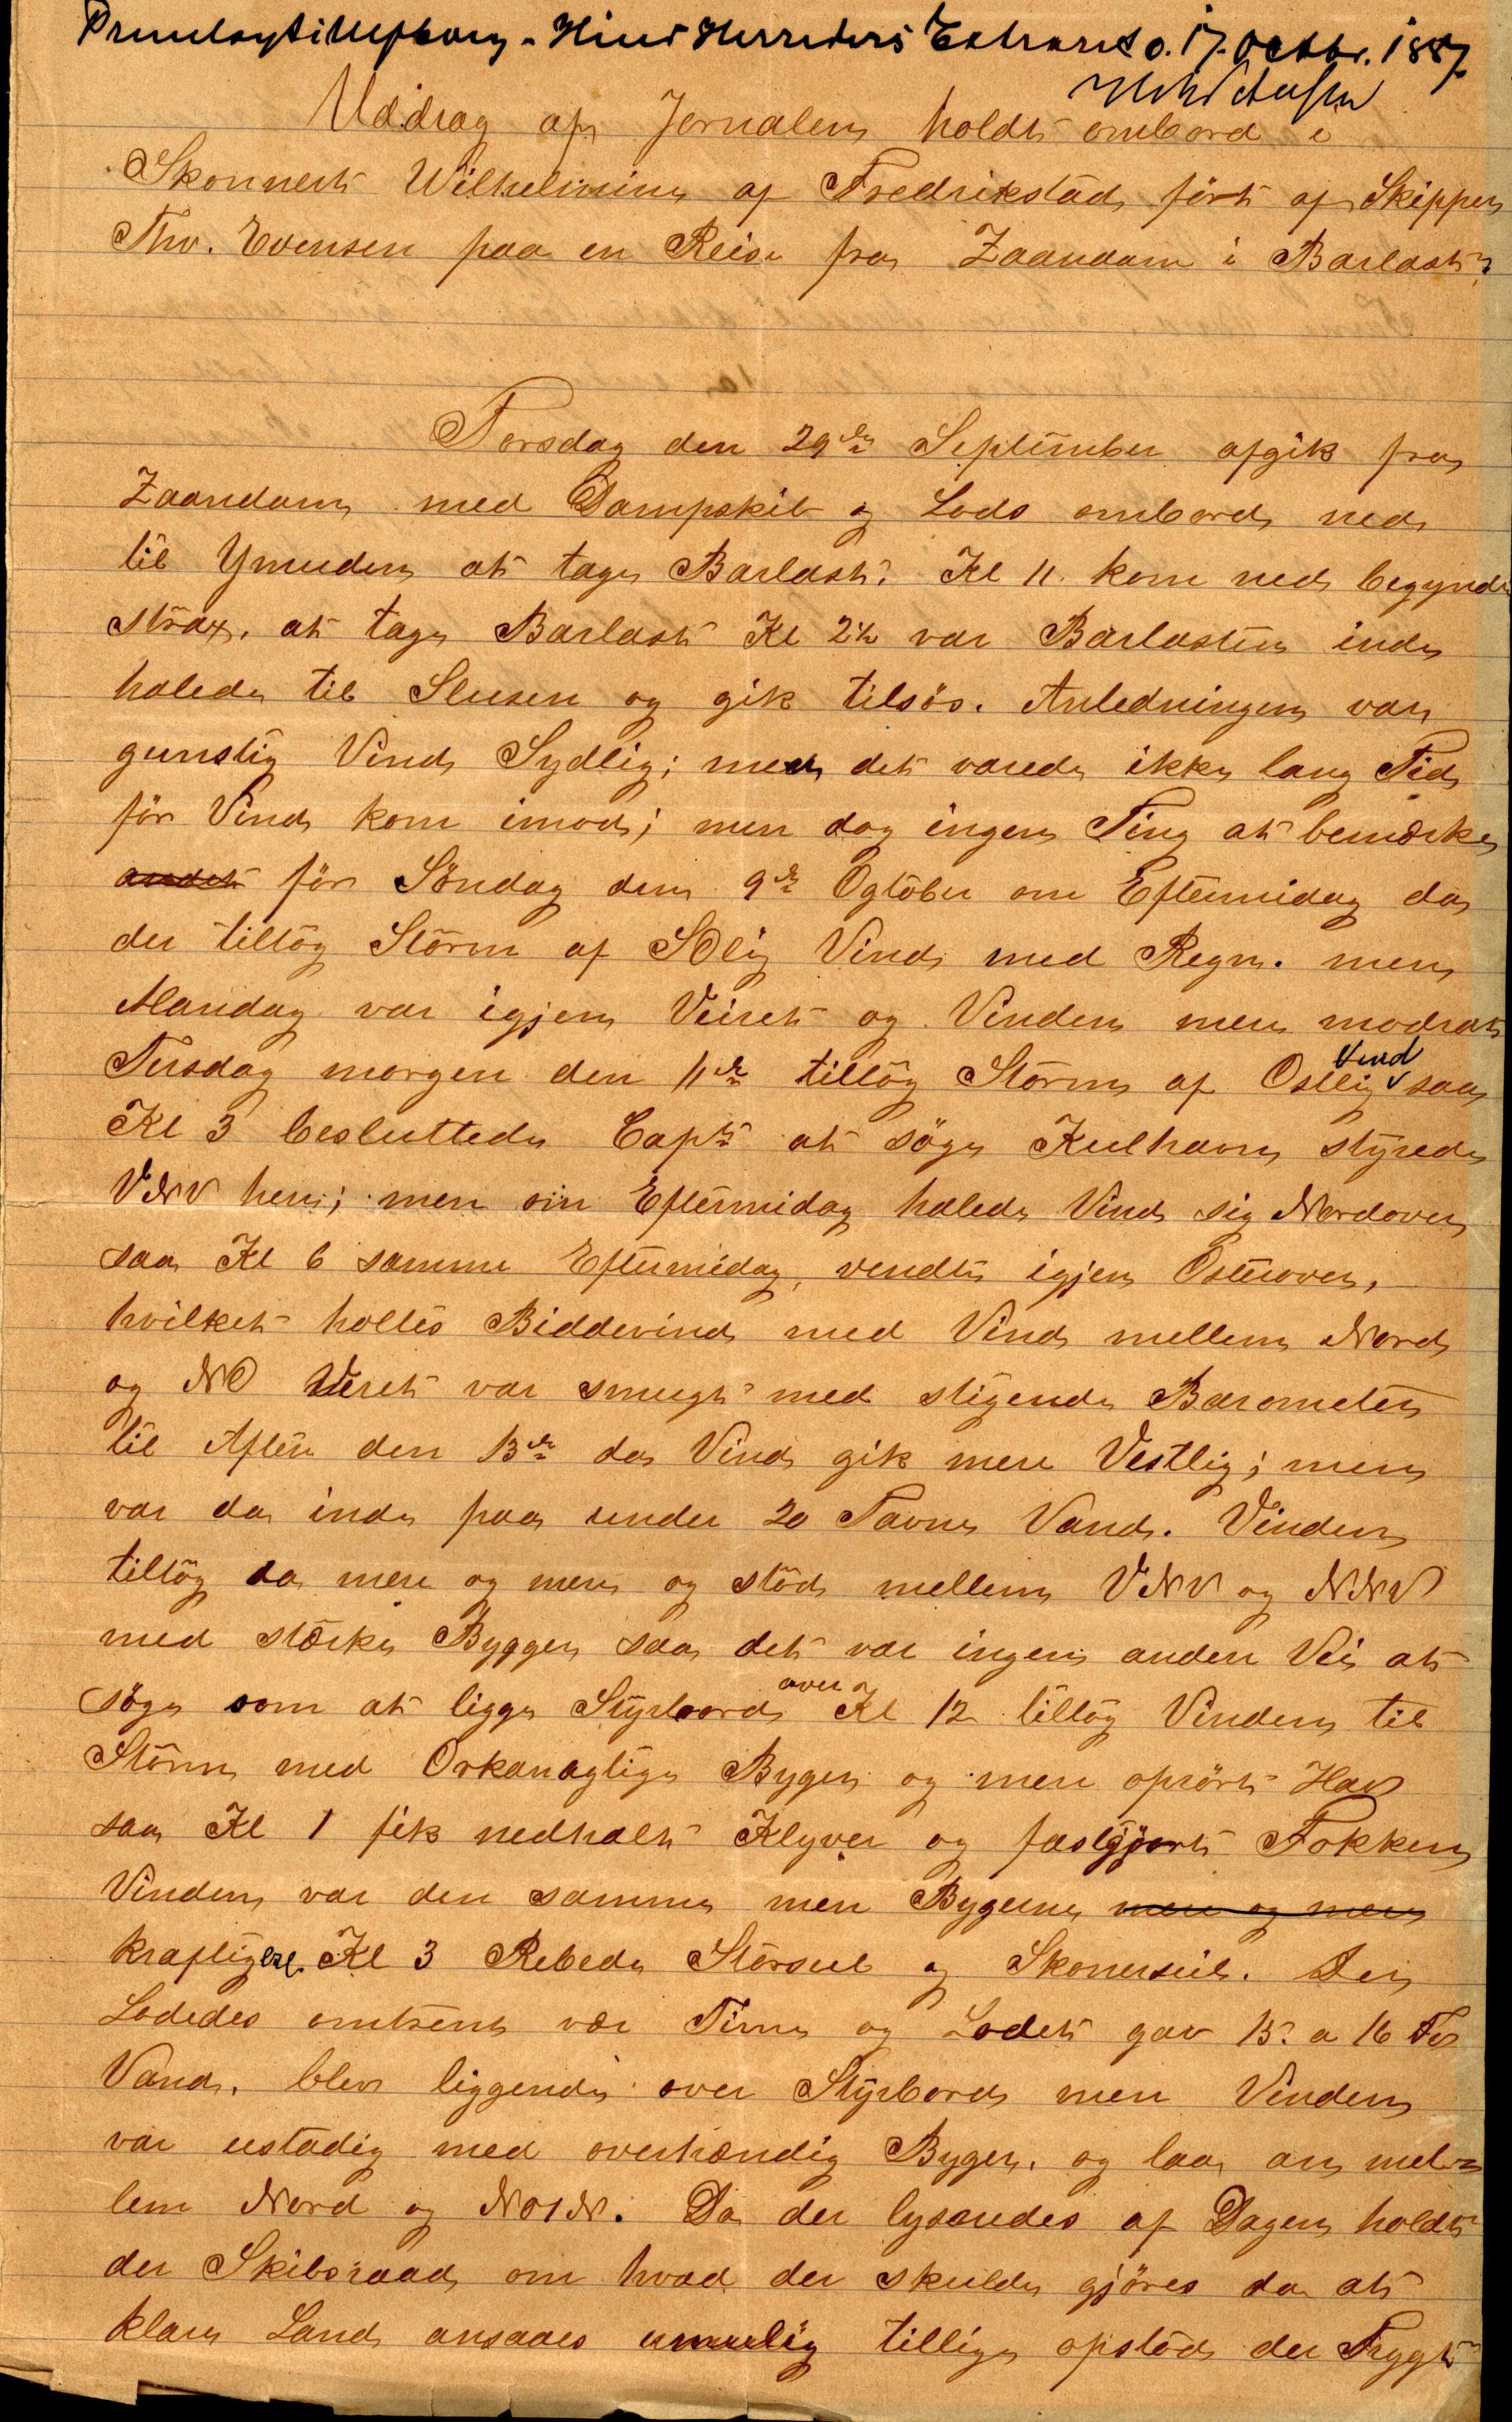 Hind Herreders Extraret d. 17. Octbr. 1887
Uddrag af Jornalen holdt ombord i
Skonnert Wilhelmine af Fredrikstad ført af Skipper
Thv. Evensen paa en Reise fra Zaandam i Barlast.
Torsdag den 29de September afgik fra
Zaandam med Dampskib og Lods ombord ned
til Ymuden at tage Barlast. Kl 11 kom ned begyndte
strax, at tage Barlast Kl 2½ var Barlasten inde
halede til Slusen og gik tilsøs. Anledningen var
gunstig Vind Sydlig; men det varede ikke lang Tid
før Vind kom imod; men dog ingen Ting at bemærke
andet før Søndag den 9de Ogtober om Eftermidag da
der tiltog Storm af SOlig Vind med Regn. men
Mandag var igjen Veiret og Vinden mere modrat
Tirsdag morgen den 11te tiltog Storm af Ostlig Vind saa
Kl 3 besluttede Capt at søge Kulhavn styrede
VNV hen; men om Eftermidag halede Vind sig Nordover
saa Kl 6 samme Eftermidag, vendte igjen Osterover,
hvilket holtes Biddevind med Vind mellem Nord
og NO Veiret var smugt med stigende Barometer
til Aften den 13de da Vind gik mere Vestlig; men
var da inde paa under 20 Favne Vand. Vinden
tiltog da mere og mere og stod mellem VNV og NNV
med stærke Bygger saa det var ingen anden Vei at
søge som at ligge Styrbord over Kl 12 tiltog Vinden til
Storm med Orkanagtige Byger og mere oprørt Hav
saa Kl 1 fik nedhalt Klyver og fastgjort Fokken
Vinden var den samme men Bygerne mere og mere
kraftigere. Kl 3 Rebede Storseil og Skonerseil. Der
Lodedes omtrent vær Time og Lodet gav 15 a 16 Fv
Vand. blev liggende over Styrbord men Vinden
var ustadig med overhændig Byger. og laa an mel=
lem Nord og NO1N. Da der lysnedes af Dagen holdt
der Skibsraad om hvad der skulde gjøres da at
klare Land ansaaes umulig tillige opstod der Frygt